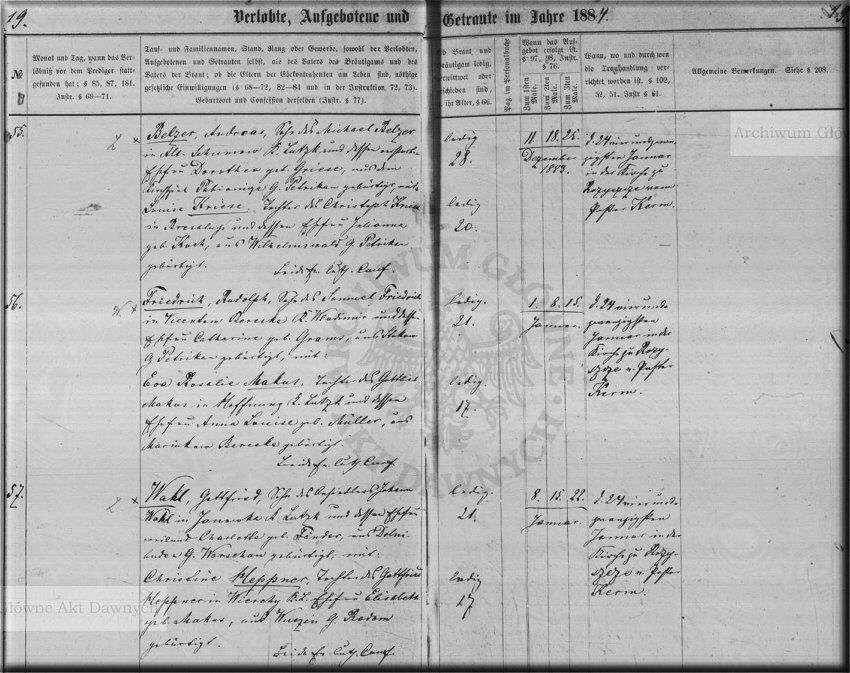 19. Verlobte, Aufgebotene und Getraute im Jahre 1884.
№
Monat und Tag, wann das Ver-
löbniß vor dem Prediger statt-
gefunden hat; § 85, 87, 181.
Instr. § 69—71.
Tauf- und Familiennamen, Stand, Rang oder Gewerbe, sowohl der Verlobten,
Aufgebotenen und Getrauten selbst, als des Vaters des Bräutigams und des
Vaters der Braut; ob die Eltern der Ehekontrahenten am Leben sind, nöthige
gesetzliche Einwilligungen (§ 68—72, 82—84 und in der Instruktion, 72, 73).
Geburtsort und Confession derselben (Instr. § 77).
Ob Braut und
Bräutigam ledig,
verwittwet oder
geschieden sind,
ihr Alter, § 66.
Pag. im Personalbuche
Wann das Auf-
gebot erfolgt ist.
§ 97, 98, Instr.
§ 76.
Zum 1sten Male.
Zum 2ten Male.
Zum 3ten Male.
Wann, wo und durch wen
die Trauhandlung ver-
richtet worden ist. § 102,
52, 51. Instr § 61.
Allgemeine Bemerkungen. Siehe § 208.
55.
Belzer, Andreas, Sohn des Michael Belzer
in Alt K. Lutzk und dessen
Ehefrau Dorothea geb. Griese, aus dem
G. Petrikau gebürtig, mit:
Louise Kriese, Tochter des Christoph Kriese
in und dessen Ehefrau Julianna
geb. Koch, aus Wilhelmswald G. Petrikau
gebürtigt.
Beide Ev. Luth. Conf.
ledig
28.
ledig
20.
11. 18. 25.
Dezember
1883.
d. 24 vierundzwan-
zigsten Januar
in der Kirche zu
Rozyszcze vom
Pastor Kerm.
56.
Friedrich, Rudolph, Sohn des Samuel Friedrich
in K. Wladimir und dessen
Ehefrau Catharine geb. aus
G. Petrikau gebürtigt, mit:
Eva Rosalie Makus, Tochter des Gottlieb
Makus in Hoffnung K. Lutzk und dessen
Ehefrau Anna Louise geb. Müller, aus
gebürtigt.
Beide Ev. Luth. Conf.
ledig.
21.
ledig
17.
1. 8. 15.
Januar.
d. 24 vierund-
zwanzigsten
Januar in der
Kirche zu Rozy-
szcze v. Pastor
Kerm.
57.
Wahl, Gottfried, Sohn des Johann
Wahl in K. Lutzk und dessen Ehefrau
weiland Charlotte geb. aus
G. Warschau gebürtigt, mit:
Christine Heppner, Tochter des Gottfried
Heppner in K. L. Ehefrau Elisabeth
geb. Makus, aus G. Radom
gebürtigt.
Beide Ev. Luth. Conf.
ledig.
21.
ledig
17.
8. 15. 22.
Januar.
d. 24 vierund-
zwanzigsten
Januar in der
Kirche zu Rozy-
szcze v. Pastor
Kerm.
ARCHIWUM GŁÓWNE AKT DAWNYCH
Archiwum Głów
Główne Akt Dawnych